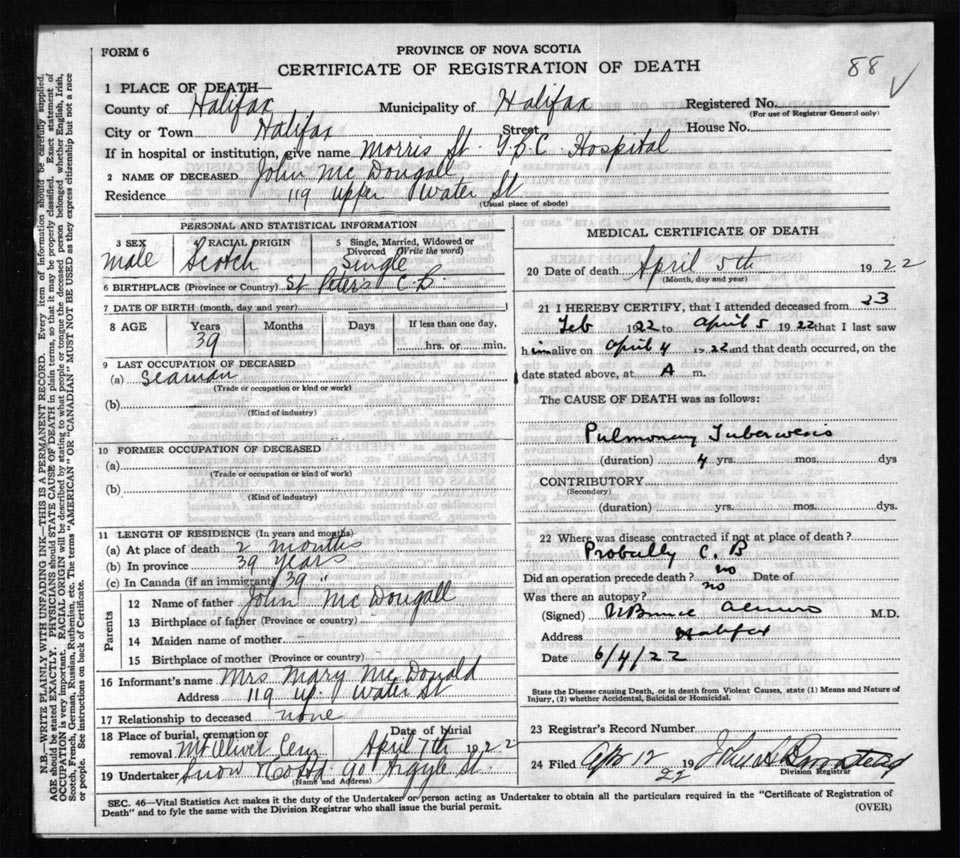 FORM 6
PROVINCE OF NOVA SCOTIA
CERTIFICATE OF REGISTRATION OF DEATH
88 ✓
1 PLACE OF DEATH—
County of Halifax Municipality of Halifax Registered No.
(For use of Registrar General only)
City or Town Halifax Street House No.
If in hospital or institution, give name Morris St. T.B.C. Hospital
2 NAME OF DECEASED John McDougall
Residence 119 upper Water St
(Usual place of abode)
PERSONAL AND STATISTICAL INFORMATION
3 SEX Male
RACIAL ORIGIN Scotch
5 Single, Married, Widowed or Divorced (Write the word) Single
6 BIRTHPLACE (Province or Country) St Peters C.B.
7 DATE OF BIRTH (month, day and year)
8 AGE Years 39 Months Days If less than one day, hrs. or min.
9 LAST OCCUPATION OF DECEASED
(a) Seaman
(Trade or occupation or kind of work)
(b)
(Kind of industry)
10 FORMER OCCUPATION OF DECEASED
(a)
(Trade or occupation or kind of work)
(b)
(Kind of industry)
11 LENGTH OF RESIDENCE (In years and months)
(a) At place of death 2 months
(b) In province 39 years
(c) In Canada (if an immigrant) 39 "
Parents
12 Name of father John McDougall
13 Birthplace of father (Province or country)
14 Maiden name of mother
15 Birthplace of mother (Province or country)
16 Informant's name Mrs Mary McDonald
Address 119 up. Water St
17 Relationship to deceased none
18 Place of burial, cremation or removal Mt Olivet Cem Date of burial April 7th 1922
19 Undertaker Snow & Co Ltd 90 Argyle St.
(Name and Address)
MEDICAL CERTIFICATE OF DEATH
20 Date of death April 5th 1922
(Month, day and year)
21 I HEREBY CERTIFY, that I attended deceased from 23
Feb 1922 to April 5 1922 that I last saw
him alive on April 4 1922 and that death occurred, on the
date stated above, at A m.
The CAUSE OF DEATH was as follows:
Pulmonary Tuberculosis
(duration) 4 yrs. mos. dys
CONTRIBUTORY
(Secondary)
(duration) yrs. mos. dys
22 Where was disease contracted if not at place of death?
Probally C.B
Did an operation precede death? no Date of
Was there an autopsy? no
(Signed) M.D.
Address Halifax
Date 6/4/22
State the Disease causing Death, or in death from Violent Causes, state (1) Means and Nature of Injury, (2) whether Accidental, Suicidal or Homicidal.
23 Registrar's Record Number
24 Filed Apr 12 1922
Division Registrar
SEC. 46—Vital Statistics Act makes it the duty of the Undertaker or person acting as Undertaker to obtain all the particulars required in the "Certificate of Registration of
Death" and to fyle the same with the Division Registrar who shall issue the burial permit. (OVER)
N.B.—WRITE PLAINLY WITH UNFADING INK—THIS IS A PERMANENT RECORD. Every item of information should be carefully supplied.
AGE should be stated EXACTLY. PHYSICIANS should STATE CAUSE OF DEATH in plain terms, so that it may be properly classified. Exact statement of
OCCUPATION is very important. RACIAL ORIGIN will be described by stating to what people or tongue the deceased person belonged whether English, Irish,
Scotch, French, German, Russian, Ruthenian, etc. The terms "AMERICAN" OR "CANADIAN" MUST NOT BE USED as they express citizenship but not a race
or people. See instructions on back of Certificate.